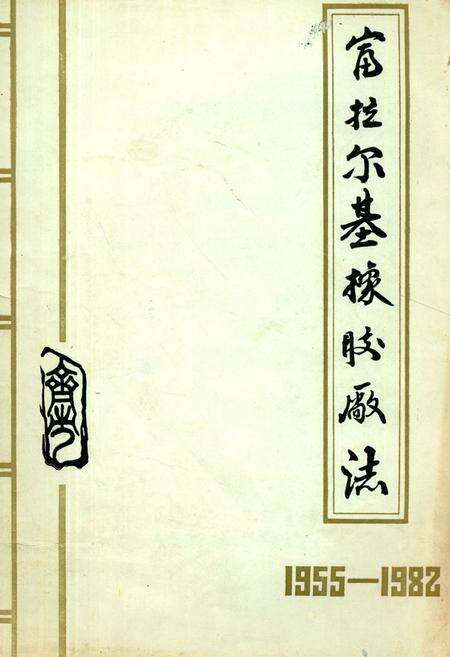 富拉尔基橡胶廠誌
1955—1982